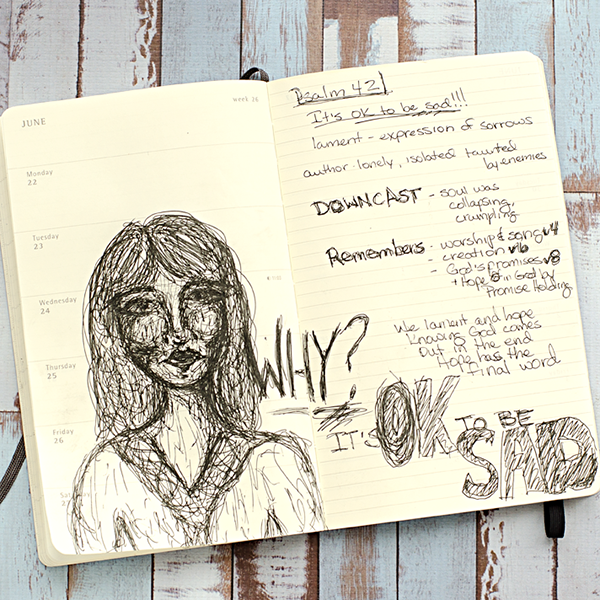 JUNE
week 26
Monday
22
Tuesday
23
Wednesday
24
Thursday
25
Friday
26
WHY?
Psalm 42
It's OK to be sad!!!
lament - expression of sorrows
author: lonely, isolated & taunted
by enemies
DOWNCAST - soul was
collapsing,
crumpling
Remembers - worship & song v4
- creation v6
- God's promises v8
+ Hope is in God by
Promise Holding
We lament and hope
Knowing God comes
Out in the end
Hope has the
final word
IT'S OK TO BE
SAD